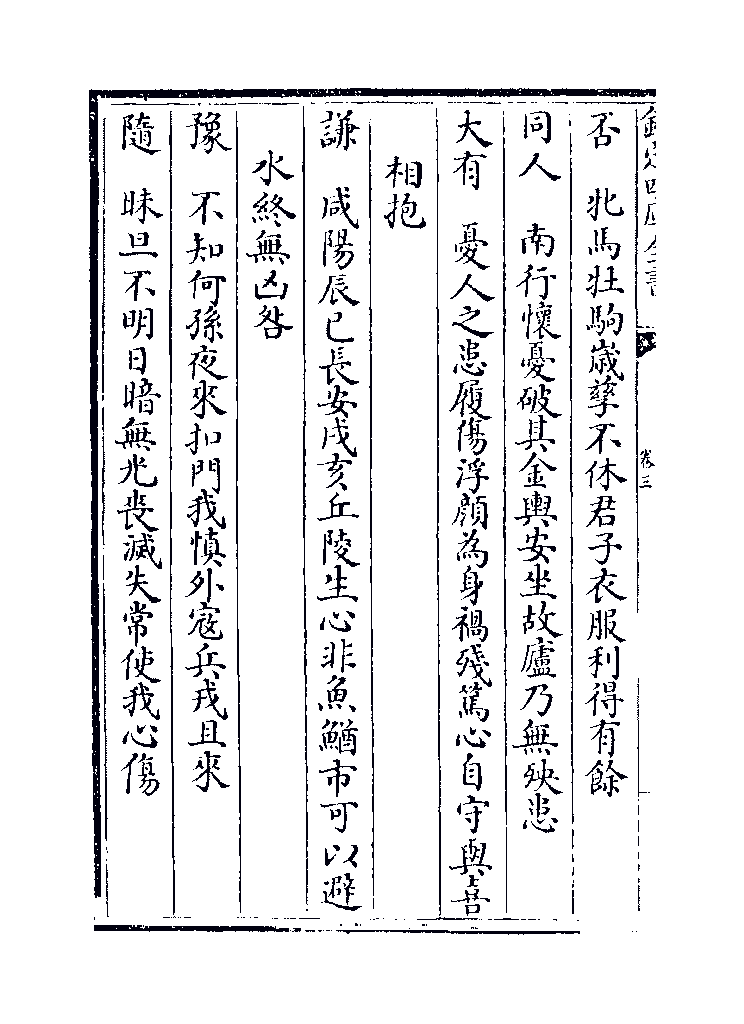 欽定四庫全書
卷三
否　牝馬牡駒歲孳不休君子衣服利得有餘
同人　南行懷憂破其金輿安坐故廬乃無殃患
大有　憂人之患履傷浮顔為身禍殘篤心自守與喜
相抱
謙　咸陽辰巳長安戌亥丘陵生心非魚鰌市可以避
水終無凶咎
豫　不知何孫夜來扣門我慎外寇兵戎且來
隨　昧旦不明日暗無光喪滅失常使我心傷